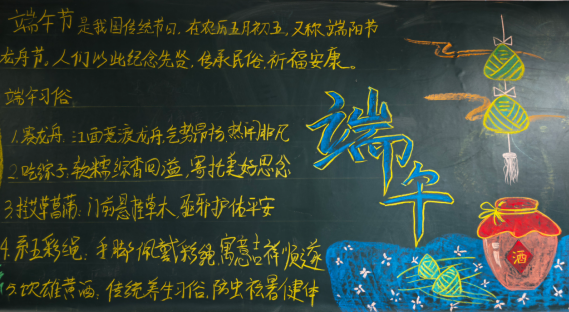 端午节是我国传统节日,在农历五月初五,又称端阳节
龙舟节。人们以此纪念先贤,传承民俗,祈福安康。
端午习俗
1.赛龙舟:江面竞渡龙舟,气势昂扬,热闹非凡
2.吃粽子:软糯粽香回溢,寄托美好思念
3.挂艾草菖蒲:门前悬挂草木,驱邪护佑平安
4.系五彩绳:手脚佩戴彩绳,寓意吉祥顺遂
5.饮雄黄酒:传统养生习俗,防虫祛暑健体
端午
酒